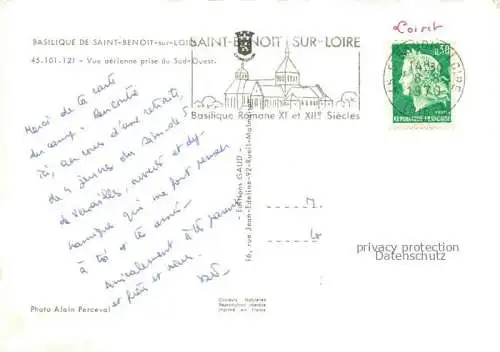 Loiret
BASILIQUE DE SAINT-BENOIT-sur-LOIRE
45.101.121 - Vue aérienne prise du Sud-Ouest.
SAINT-BENOIT SUR-LOIRE
Basilique Romane XI et XIIe Siècles
0,30
1970
REPUBLIQUE FRANÇAISE
POSTES
Merci de ta carte
du camp. Rencontré
ici, au cours d'une retraite,
de 4 jeunes du
de Versailles, ouvert et dy-
namique qui me font penser
à toi et tes amis
Amicalement à tes parents
et frère et sœur.
- Editions GAUD -
16, rue Jean-Edeline-92-Rueil-Malmaison
M.
privacy protection
Datenschutz
Photo Alain Perceval
Couleurs Naturelles
Reproduction interdite
Imprimé en France